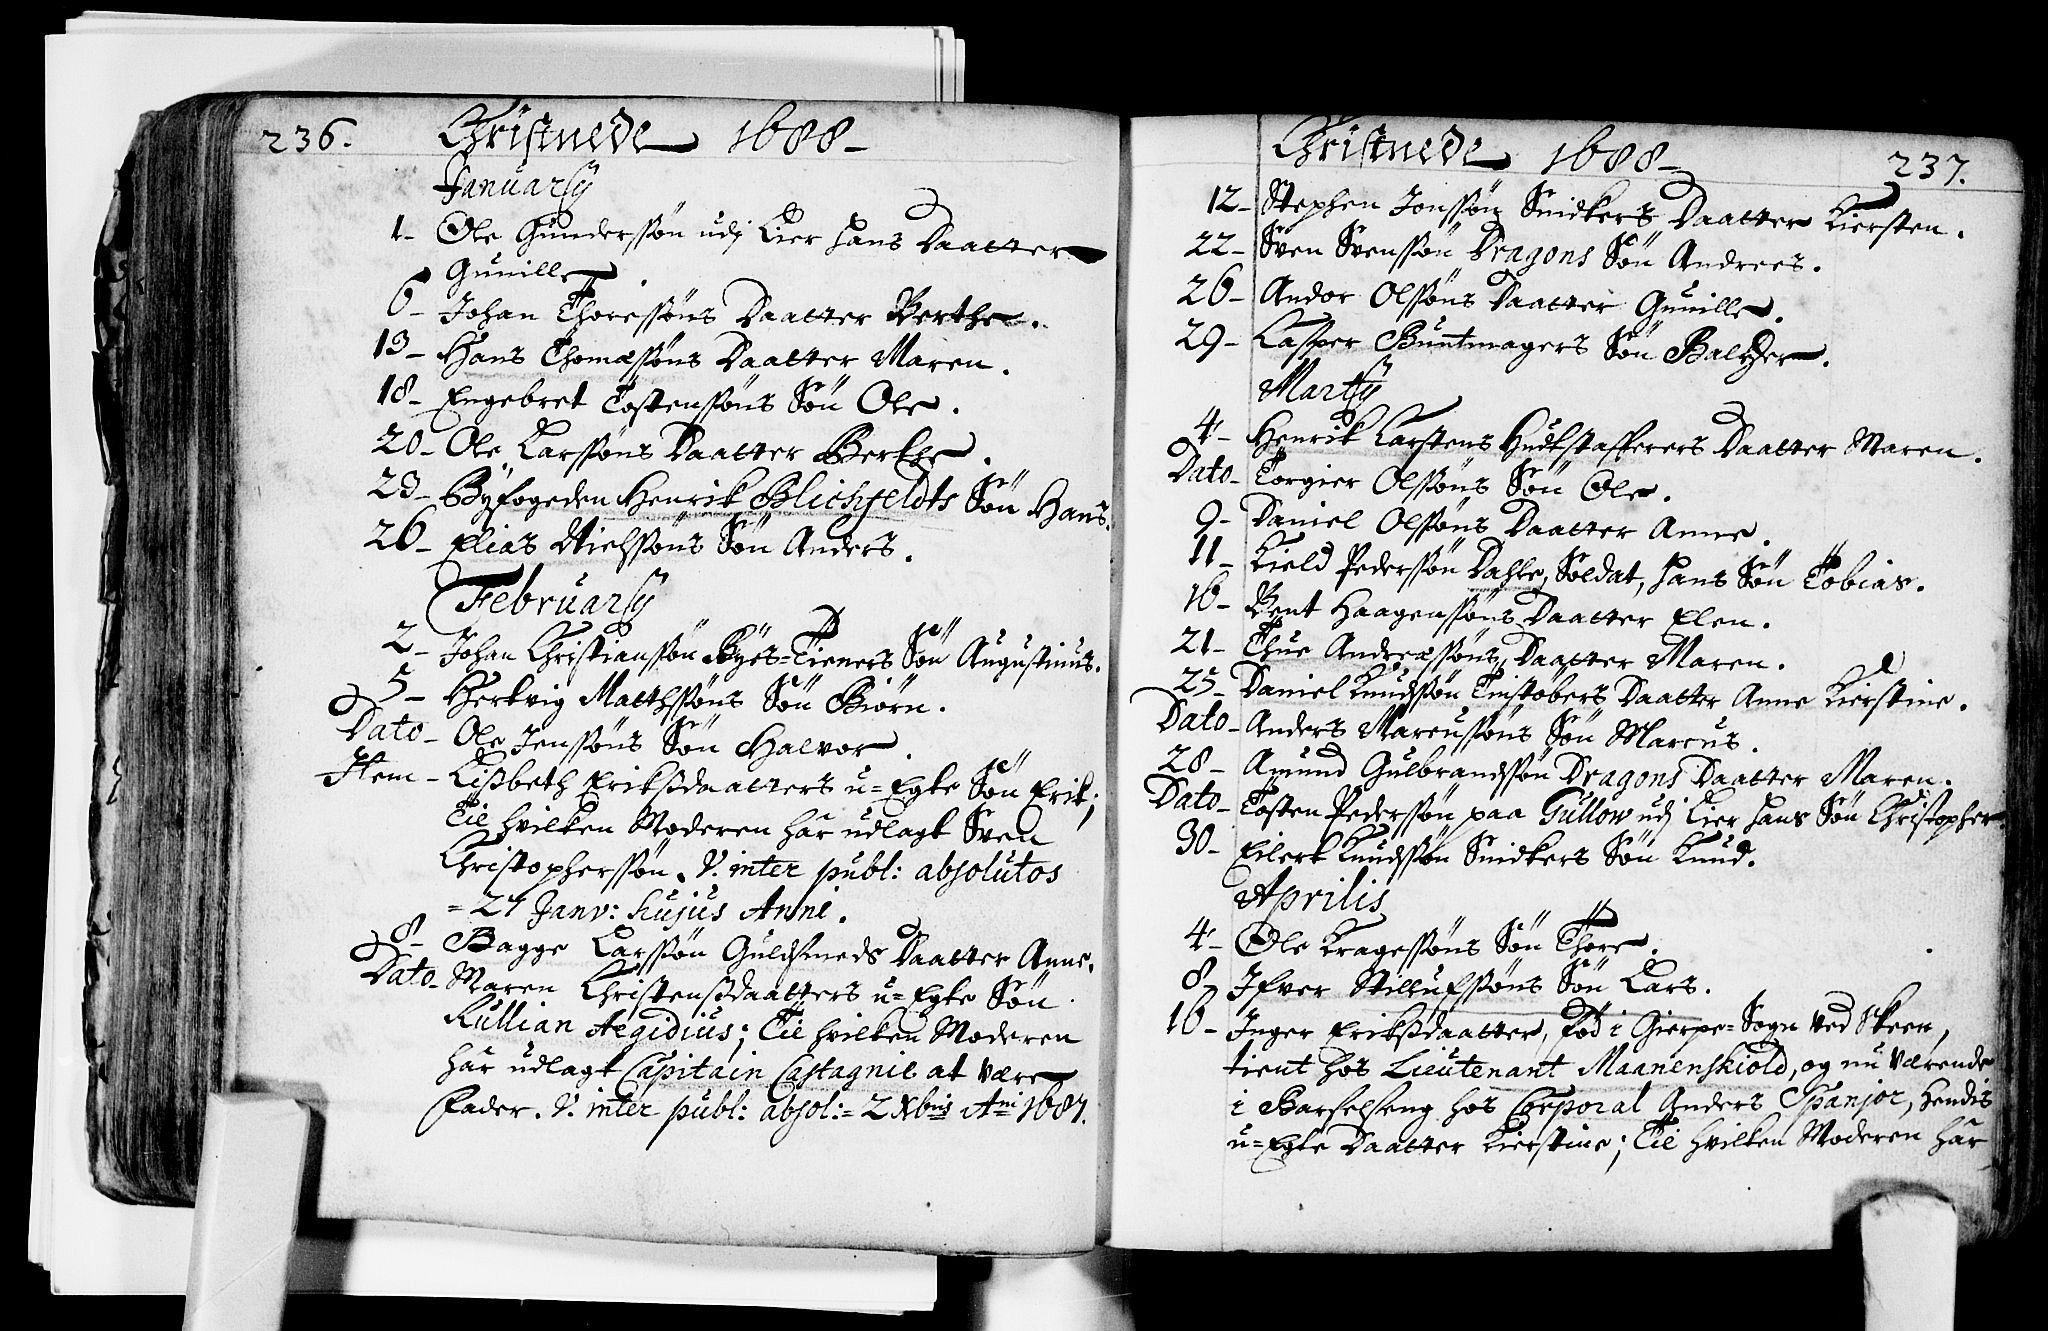 236.
Christnede 1688
Januarij
1- Ole Gunderssøn udj Lier hans Daatter
Gunille.
6- Johan Thoressøns Daatter Berthe.
13- Hans Thomæssøns Daatter Maren.
18- Engebret Tostenssøns Søn Ole.
20- Ole Larssøns Daatter Berthe.
23- Byfogeden Henrik Blichfeldts Søn Hans.
26- Elias Nielssøns Søn Anders.
Februarij
2- Johan Christianssøn Byes-Tieners Søn Augustinus.
5- Hertvig Matthssøns Søn Biørn.
Dato- Ole Jenssøns Søn Halvor.
Item- Lißbeth Erikßdaatters u-Egte Søn Erik;
Til hvilken Moderen har udlagt Sven
Christopherssøn. V. inter publ: absolutos
= 24 Janv: hujus Anni.
8- Bagge Larssøn Guldsmeds Daatter Anne.
Dato- Maren Christensdaatters u-Egte Søn
Kullian Aegidius; Til hvilken Moderen
har udlagt Capitain Castagnie at være
Fader. V. inter publ: absol:= 2 Xbris Ani 1687.
Christnede 1688-
237.
12- Stephen Jonssøn Snidkers Daatter Kiersten.
22- Sven Svenssøn Dragons Søn Andrees.
26- Andor Olssøns Daatter Gunille.
29- Casper Buntmagers Søn Baltzer.
Martij
4- Henrik Carstens Hudtstafferers Daatter Maren.
Dato- Torgier Olssøns Søn Ole.
9- Daniel Olssøns Daatter Anne.
11- Kield Pederssøn Dahle, Soldat, hans Søn Tobias.
16- Bent Haagenssøns Daatter Elen.
21- Thue Andreæssøns Daatter Maren.
25- Daniel Knudssøn Tinstøbers Daatter Anne Kierstine.
Dato- Anders Marcussøns Søn Marcus.
28- Amund Gulbrandssøn Dragons Daatter Maren.
Dato- Tosten Pederssøn paa Gullow udj Lier hans Søn Christopher.
30- Eilert Knudssøn Snidkers Søn Knud.
Aprilis
4- Ole Kragessøns Søn Thore.
8- Ifver Stillufssøns Søn Lars.
16- Inger Erikßdaatter, fød i Gierpe-Sogn ved Skeen,
tient hos Lieutenant Maanenskiold, og nu værende
i Barselseng hos Corporal Anders Spanjor, hendis
u-Egte Daatter Kierstine; Til hvilken Moderen har